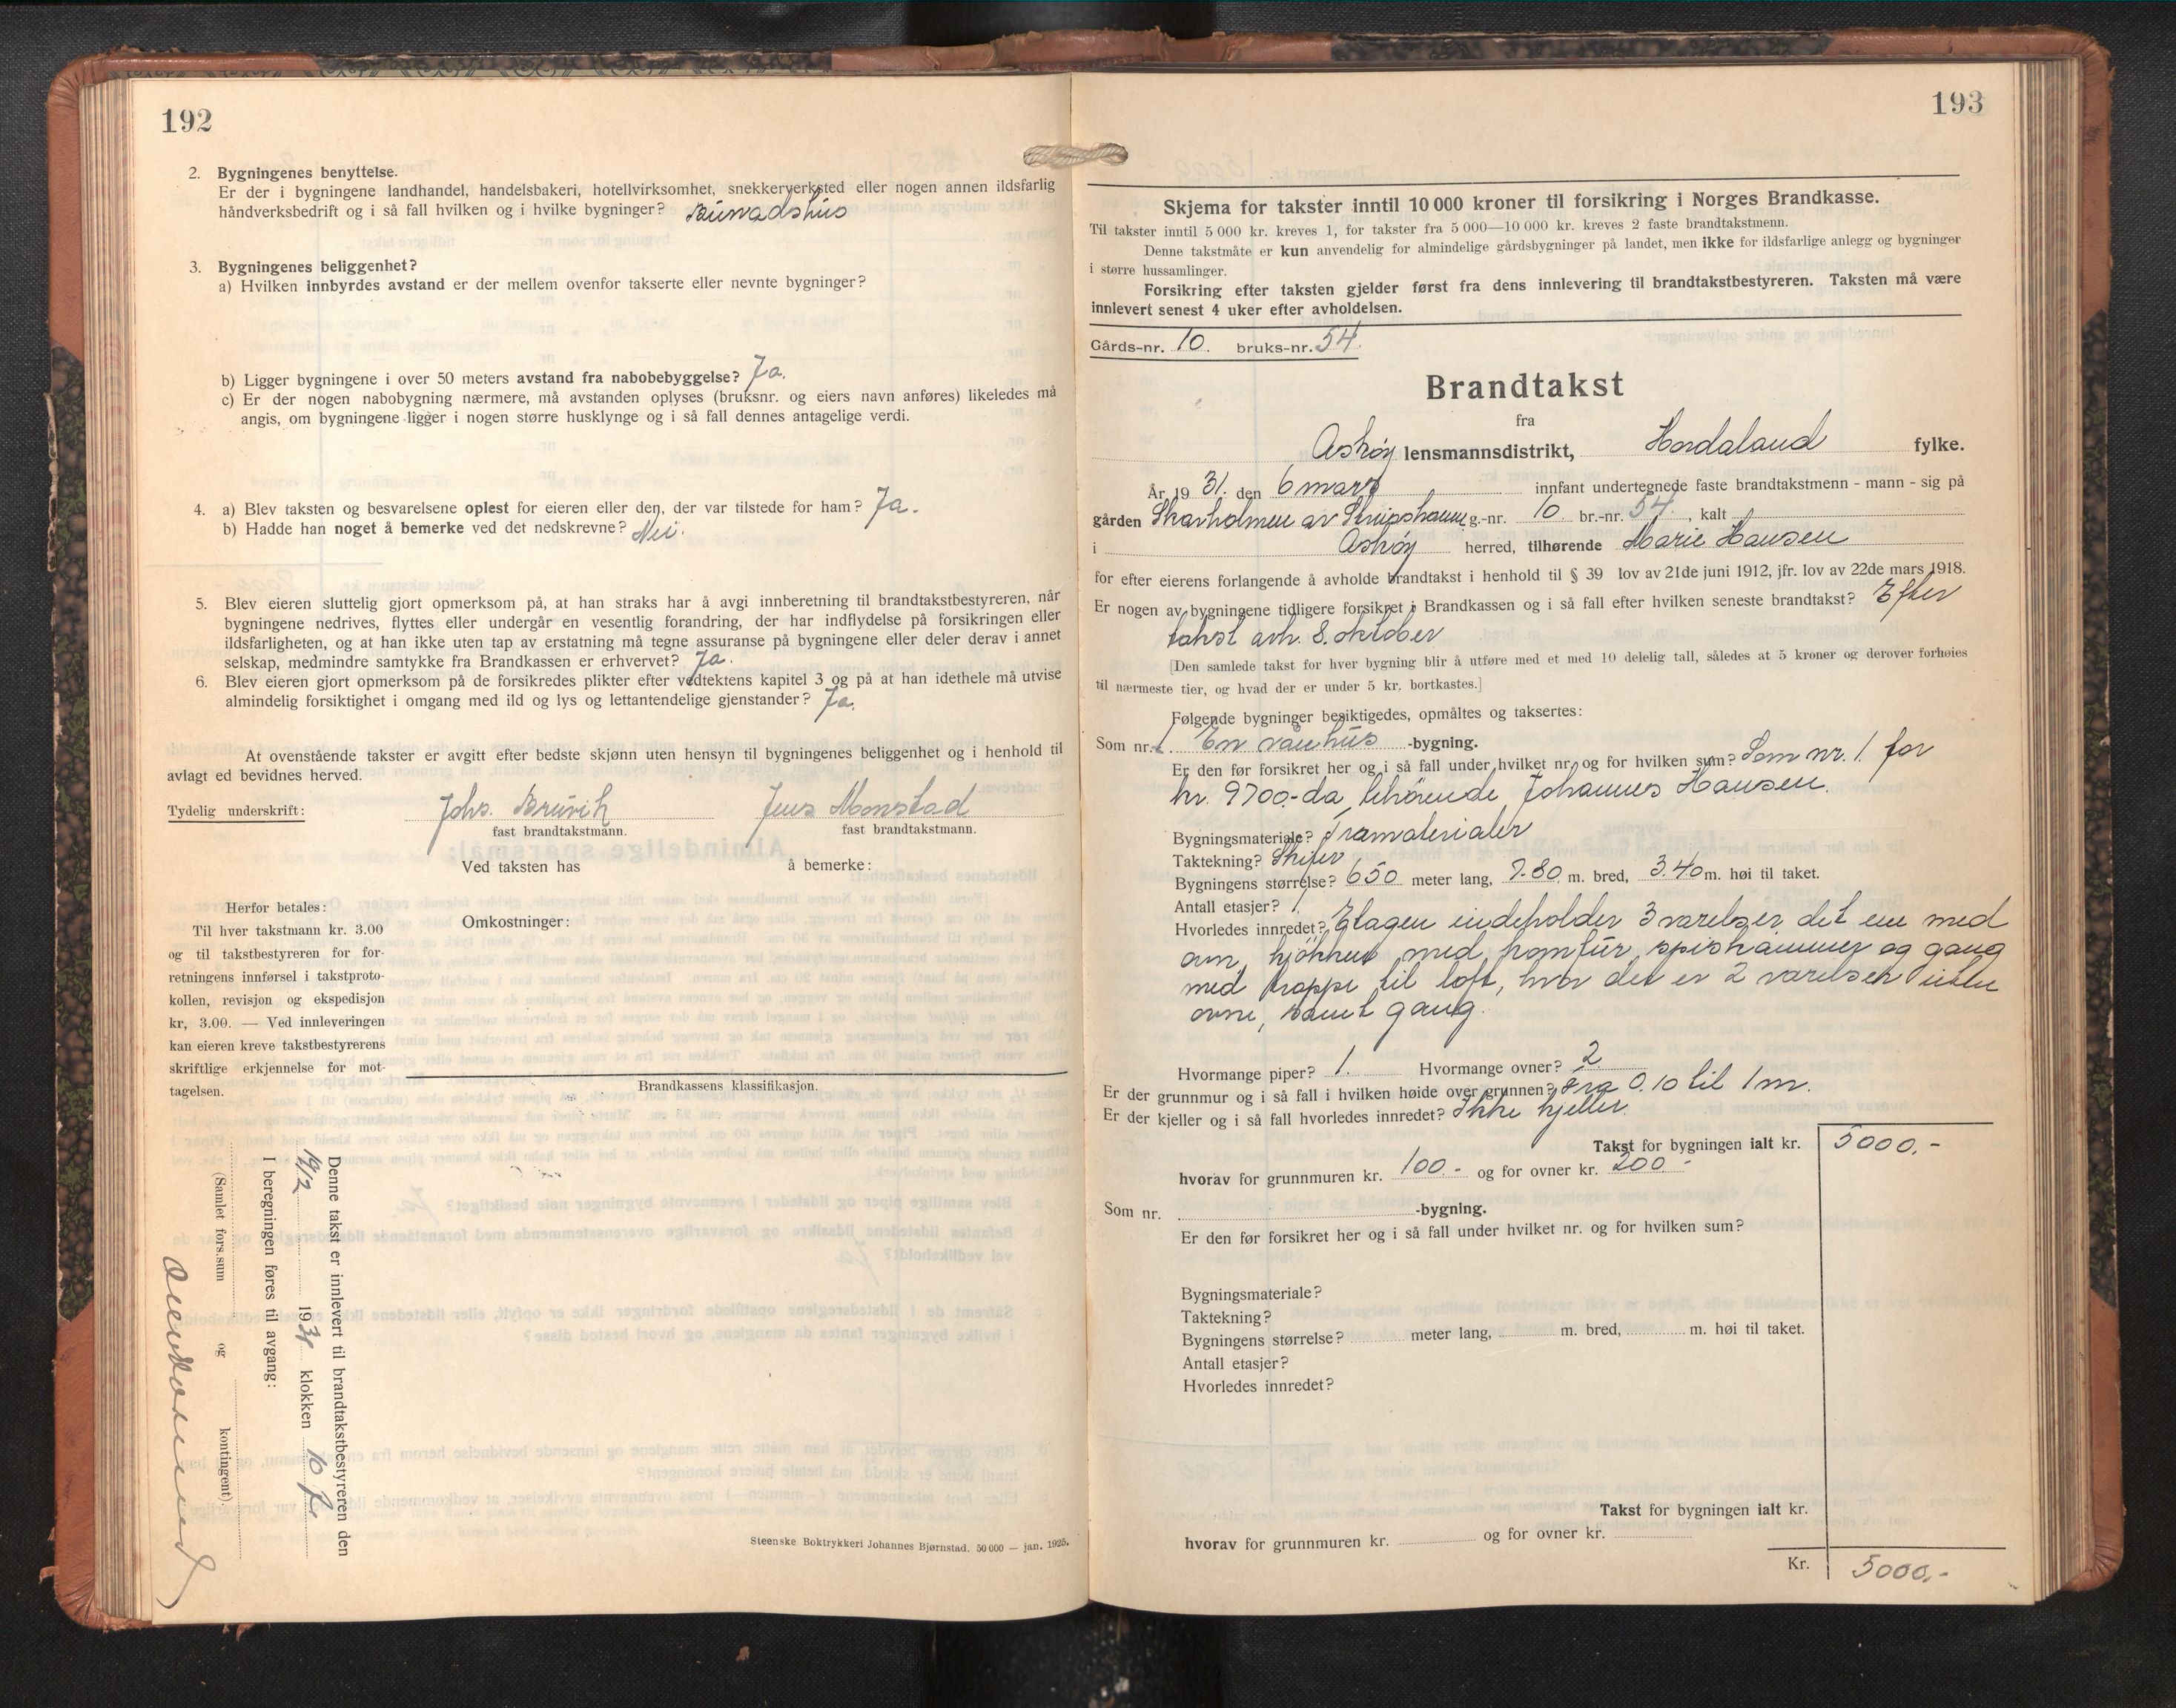 192
2. Bygningenes benyttelse.
Er der i bygningene landhandel, handelsbakeri, hotellvirksomhet, snekkerverksted eller nogen annen ildsfarlig
håndverksbedrift og i så fall hvilken og i hvilke bygninger?
3. Bygningenes beliggenhet?
a) Hvilken innbyrdes avstand er der mellem ovenfor takserte eller nevnte bygninger?
b) Ligger bygningene i over 50 meters avstand fra nabobebyggelse? Ja.
c) Er der nogen nabobygning nærmere, må avstanden oplyses (bruksnr. og eiers navn anføres) likeledes må
angis, om bygningene ligger i nogen større husklynge og i så fall dennes antagelige verdi.
4. a) Blev taksten og besvarelsene oplest for eieren eller den, der var tilstede for ham? Ja.
b) Hadde han noget å bemerke ved det nedskrevne? Nei.
5. Blev eieren sluttelig gjort opmerksom på, at han straks har å avgi innberetning til brandtakstbestyreren, når
bygningene nedrives, flyttes eller undergår en vesentlig forandring, der har indflydelse på forsikringen eller
ildsfarligheten, og at han ikke uten tap av erstatning må tegne assuranse på bygningene eller deler derav i annet
selskap, medmindre samtykke fra Brandkassen er erhvervet? Ja.
6. Blev eieren gjort opmerksom på de forsikredes plikter efter vedtektens kapitel 3 og på at han idethele må utvise
almindelig forsiktighet i omgang med ild og lys og lettantendelige gjenstander? Ja.
At ovenstående takster er avgitt efter bedste skjønn uten hensyn til bygningenes beliggenhet og i henhold til
avlagt ed bevidnes herved.
Tydelig underskrift: Johs. Bruvik Jens Monstad
fast brandtakstmann. fast brandtakstmann.
Ved taksten has å bemerke:
Herfor betales:
Til hver takstmann kr. 3.00
og til takstbestyreren for for-
retningens innførsel i takstproto-
kollen, revisjon og ekspedisjon
kr, 3.00. — Ved innleveringen
kan eieren kreve takstbestyrerens
skriftlige erkjennelse for mot-
tagelsen.
Omkostninger:
Brandkassens klassifikasjon.
Denne takst er innlevert til brandtakstbestyreren den
19/2 1931 klokken 10 f
I beregningen føres til avgang:
(Samlet fors.sum og kontingent).
Steenske Boktrykkeri Johannes Bjørnstad. 50 000 — jan. 1925.
193
Skjema for takster inntil 10 000 kroner til forsikring i Norges Brandkasse.
Til takster inntil 5 000 kr. kreves 1, for takster fra 5 000—10 000 kr. kreves 2 faste brandtakstmenn.
Denne takstmåte er kun anvendelig for almindelige gårdsbygninger på landet, men ikke for ildsfarlige anlegg og bygninger
i større hussamlinger.
Forsikring efter taksten gjelder først fra dens innlevering til brandtakstbestyreren. Taksten må være
innlevert senest 4 uker efter avholdelsen.
Gårds-nr. 10. bruks-nr. 54.
Brandtakst
fra
Askøy lensmannsdistrikt, Hordaland fylke.
År 19 31. den 6 mars innfant undertegnede faste brandtakstmenn - mann - sig på
gården Skarholmen av Strupshavn g.-nr. 10. br.-nr. 54., kalt
i Askøy herred, tilhørende Marie Hansen
for efter eierens forlangende å avholde brandtakst i henhold til § 39 lov av 21de juni 1912, jfr. lov av 22de mars 1918.
Er nogen av bygningene tidligere forsikret i Brandkassen og i så fall efter hvilken seneste brandtakst? Efter
takst avh. 8. oktober
[Den samlede takst for hver bygning blir å utføre med et med 10 delelig tall, således at 5 kroner og derover forhøies
til nærmeste tier, og hvad der er under 5 kr. bortkastes.]
Følgende bygninger besiktigedes, opmåltes og taksertes:
Som nr. 1. En vånhus -bygning.
Er den før forsikret her og i så fall under hvilket nr. og for hvilken sum? Som nr. 1. for
kr. 9700.- da tilhørende Johannes Hansen.
Bygningsmateriale? Tramaterialer
Taktekning? Skifer
Bygningens størrelse? 650 meter lang, 7.80 m. bred, 3.40 m. høi til taket.
Antall etasjer? 1
Hvorledes innredet? Etagen indeholder 3 værelser, det ene med
ovn, kjøkken med komfur, spiskammer og gang
med trappe til loft, hvor det er 2 værelser uten
ovne, samt gang.
Hvormange piper? 1. Hvormange ovner? 2.
Er der grunnmur og i så fall i hvilken høide over grunnen? fra 0.10 til 1 m.
Er der kjeller og i så fall hvorledes innredet? Ikke kjeller.
Takst for bygningen ialt kr. 5000.-
hvorav for grunnmuren kr. 100.- og for ovner kr. 200.-
Som nr. -bygning.
Er den før forsikret her og i så fall under hvilket nr. og for hvilken sum?
Bygningsmateriale?
Taktekning?
Bygningens størrelse? meter lang, m. bred, m. høi til taket.
Antall etasjer?
Hvorledes innredet?
Takst for bygningen ialt kr.
hvorav for grunnmuren kr. og for ovner kr.
Kr. 5000.-